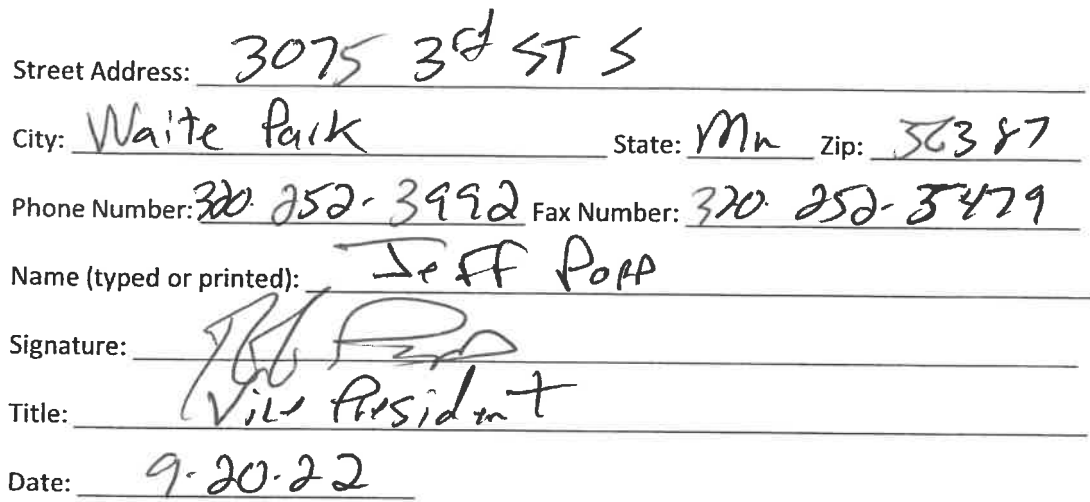 Street Address: 3075 3rd ST S
City: Waite Park State: Mn Zip: 56387
Phone Number: 320. 252-3992 Fax Number: 320. 252-5479
Name (typed or printed): Jeff Popp
Signature:
Title: Vice President
Date: 9-20-22